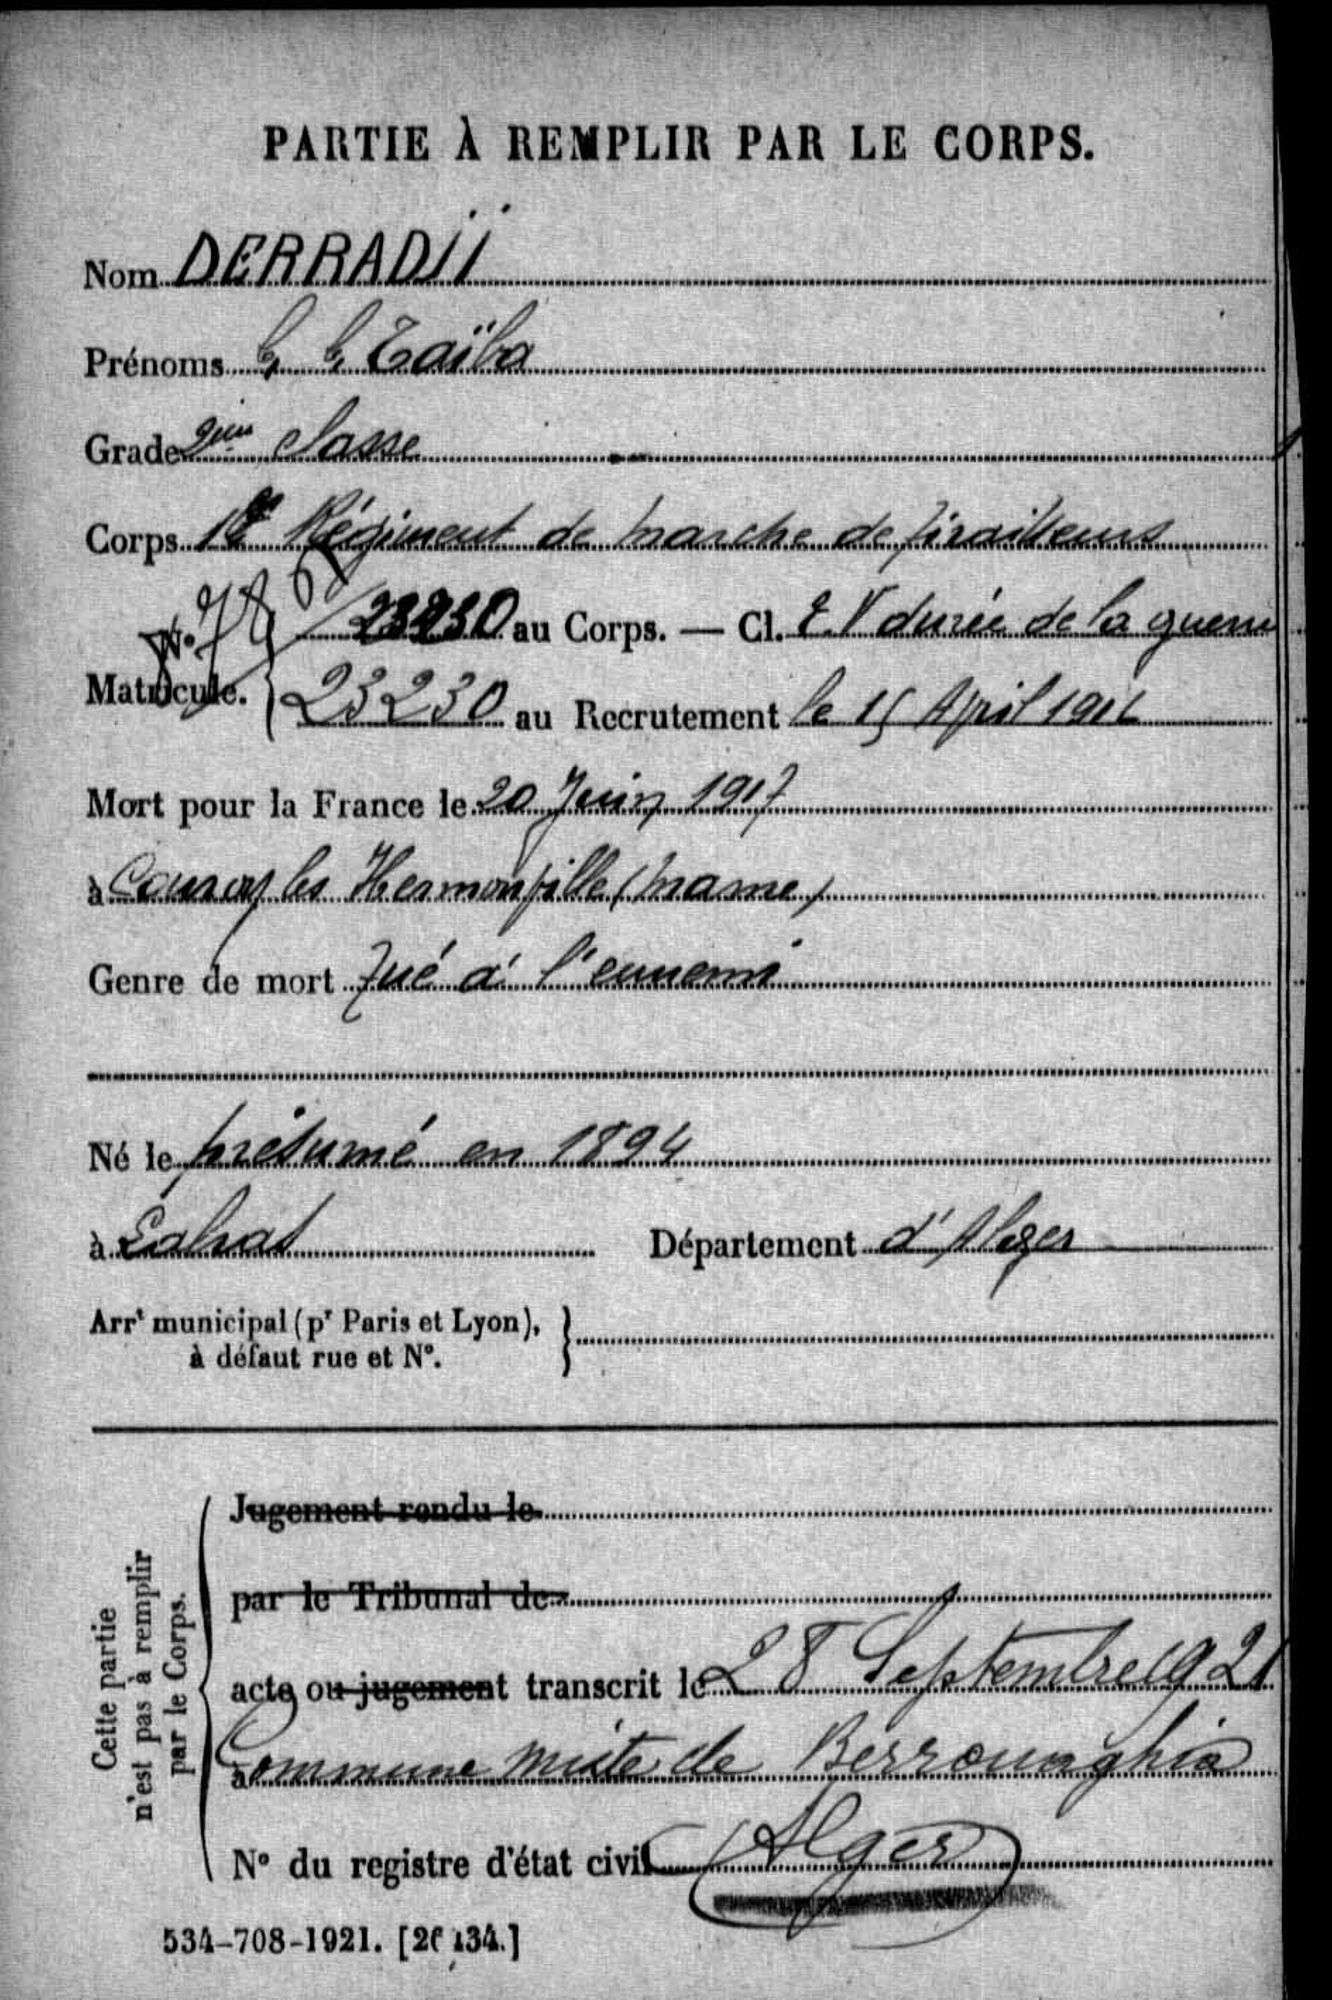 PARTIE À REMPLIR PAR LE CORPS.
Nom DERRADJI
Prénoms b. b. Taïba
Grade 2ème classe
Corps Régiment de marche de tirailleurs
No 23230 au Corps. — Cl. E.V durée de la guerre
Matricule. 23230 au Recrutement le 15 April 1916
Mort pour la France le 20 Juin 1917
à les Hermonville (Marne)
Genre de mort Tué à l'ennemi
Né le présumé en 1894
à Département d'Alger
Arrt municipal (pr Paris et Lyon),
à défaut rue et N°.
Cette partie
n'est pas à remplir
par le Corps.
Jugement rendu le
par le Tribunal de
acte ou jugement transcrit le 28 Septembre 1921
à Commune mixte de Berrouaghia
N° du registre d'état civil (Alger)
534-708-1921. [26134.]